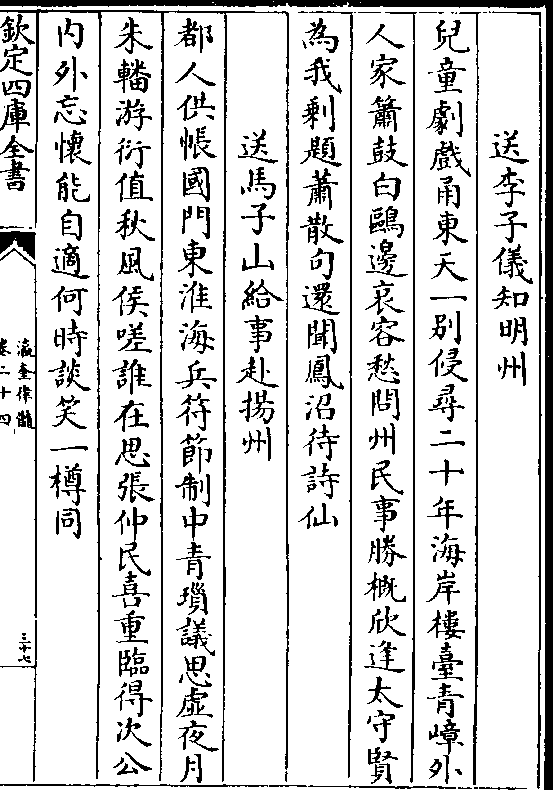 送李子儀知明州
兒童劇戲甬東天一別侵尋二十年海岸樓臺青嶂外
人家簫鼓白鷗邊哀容愁問州民事勝概欣逢太守賢
為我剰題蕭散句還聞鳳沼待詩仙
送馬子山給事赴揚州
都人供帳國門東淮海兵符節制中青瑣議思虛夜月
朱轓游衍值秋風侯嗟誰在思張仲民喜重臨得次公
内外忘懷能自適何時談笑一樽同
欽定四庫全書
瀛奎律髓
卷二十四
三十七